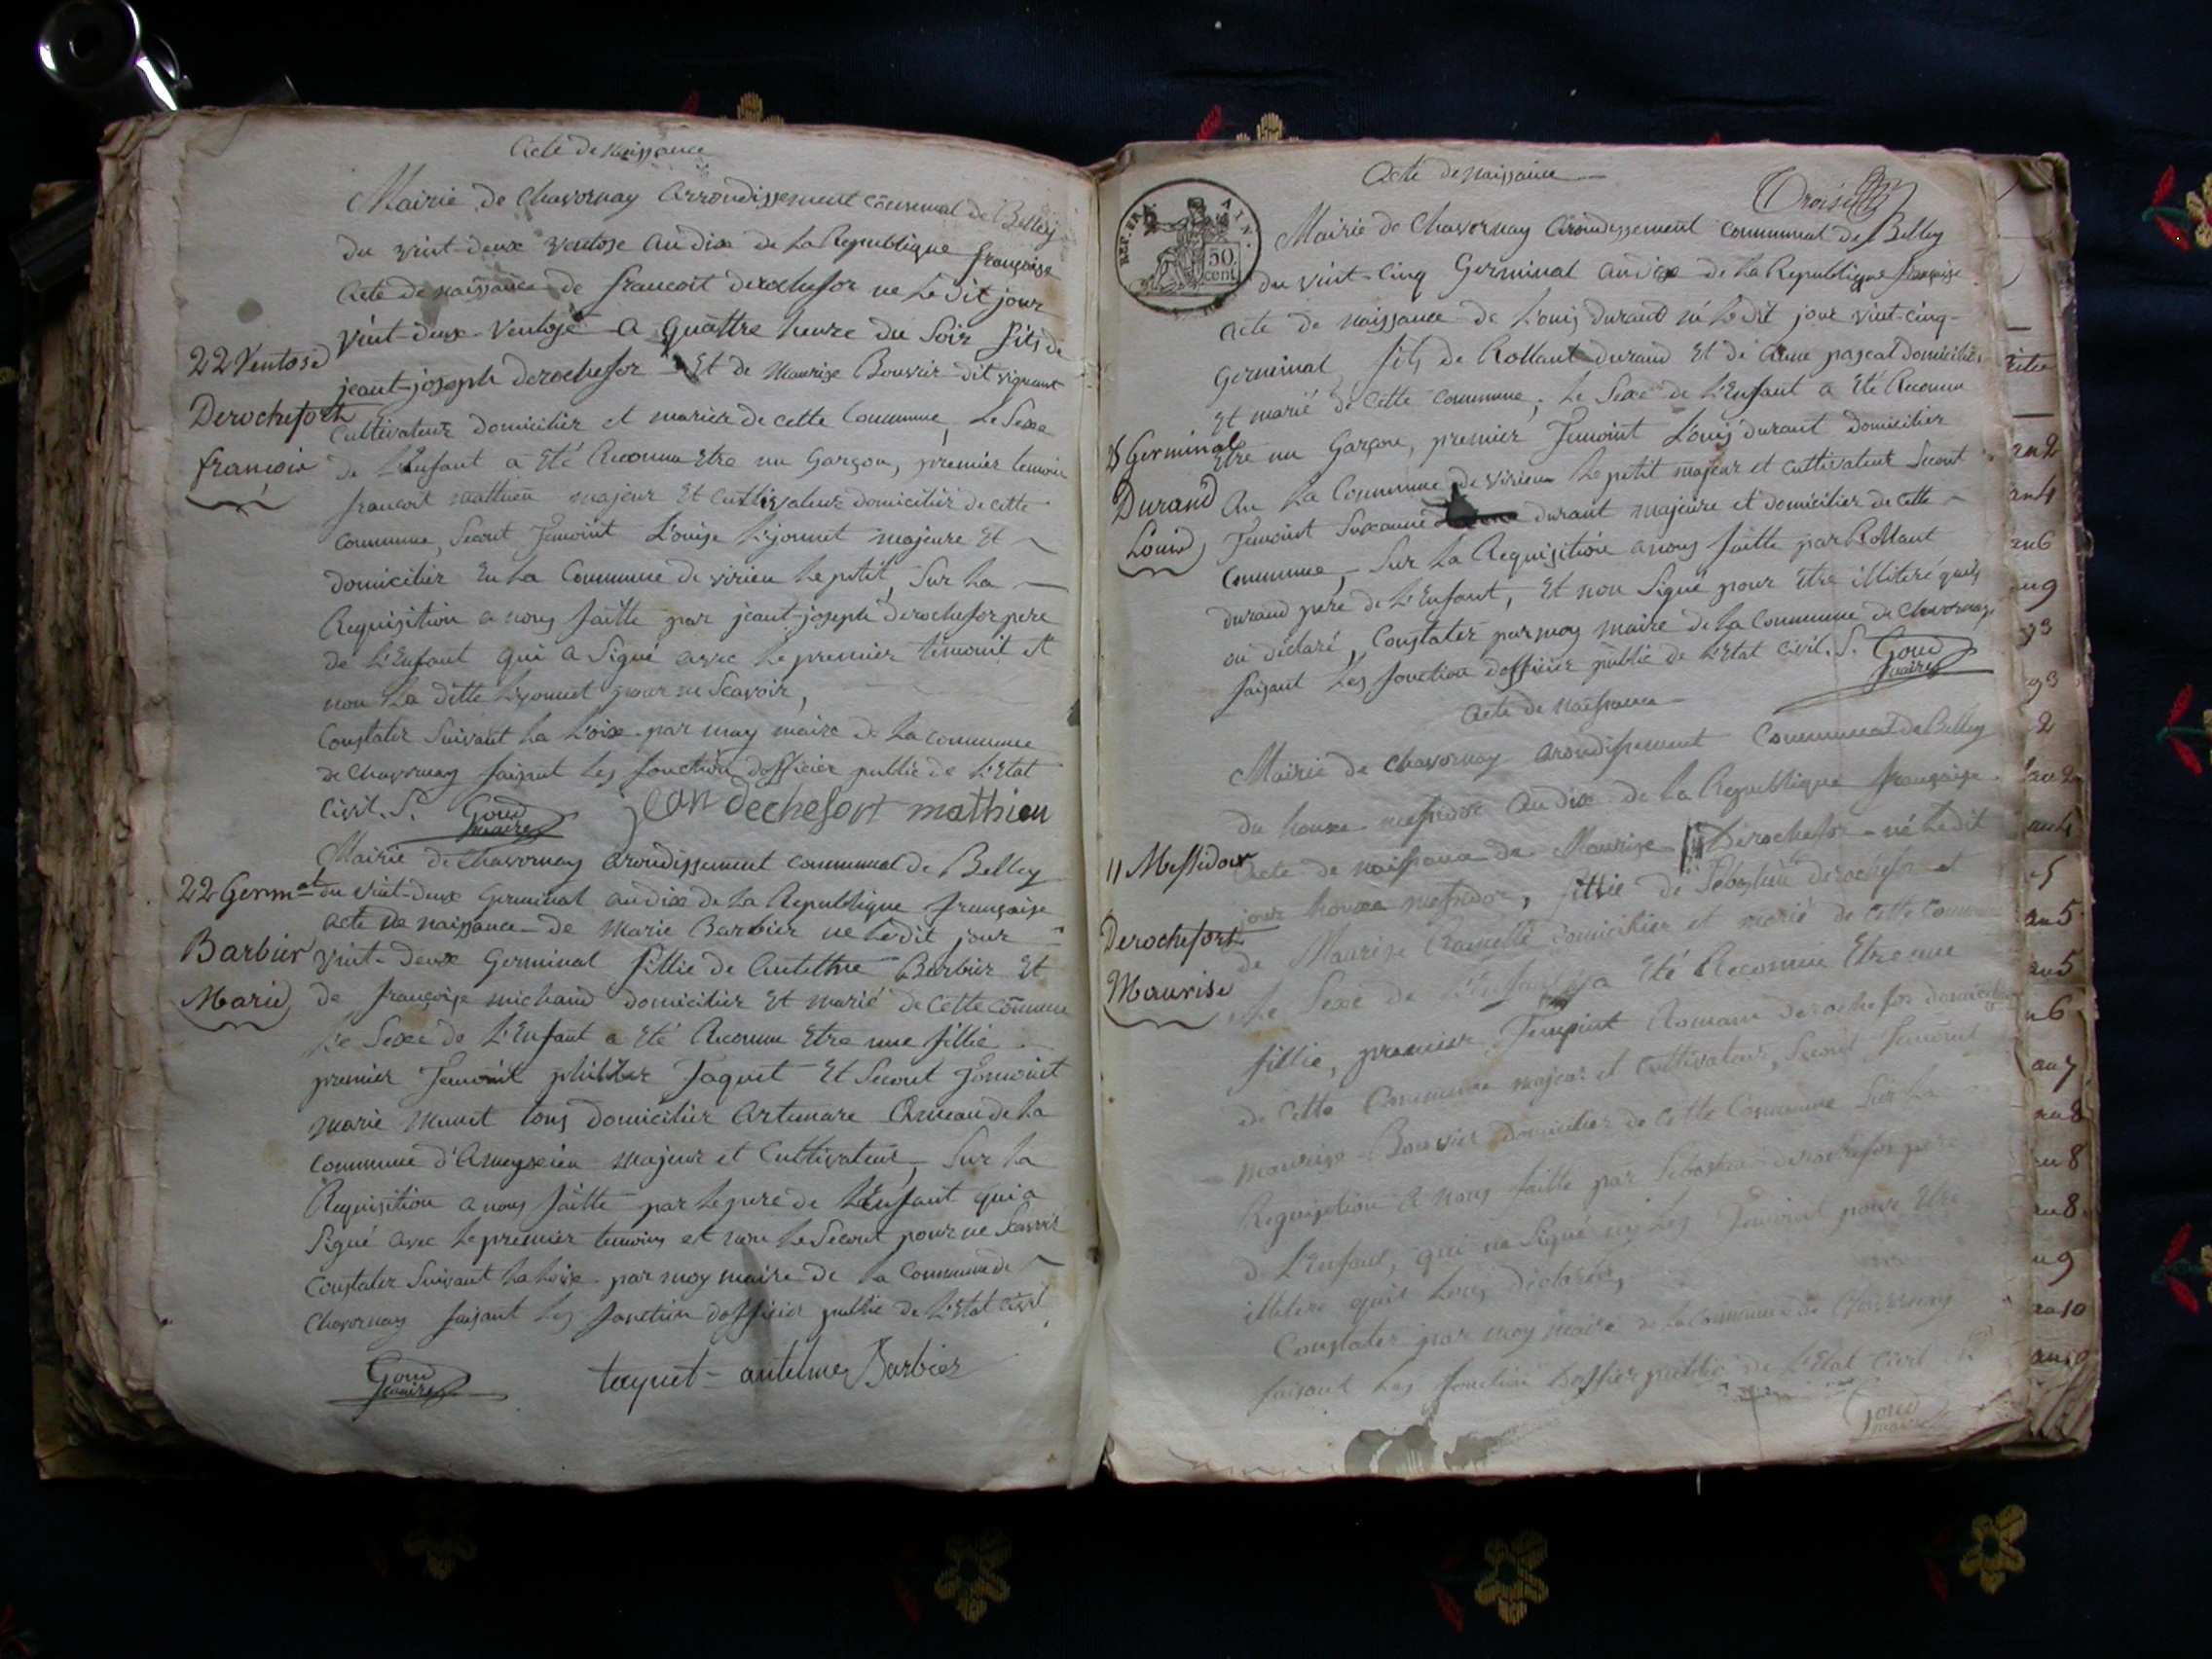 Acte de naissance
Mairie de Chavornay arrondissement communal de Belley
du vint-deux ventose an dix de la Republique françoise
Acte de naissance de françoit derochefor ne le dit jour
vint-deux ventose a quattre heure du soir fils de
22 Ventose
jeant-joseph derochefor et de Maurise Bouvier dit vignant
Derochefort
cultivateur domicilier et mariez de cette commune, le sexe
françois
de l'Enfant a été Reconnu Etre un Garçon, premier temoin
françoit mathieu majeur et cultivateur domicilier de cette
commune, secont Temoint Louise Lyonnet majeure et
domicilier en la commune de virieu le petit, sur la
Requisition a nous faitte par jeant-joseph derochefor pere
de l'Enfant qui a signé avec le premier temoint et
non la ditte Lyonnet pour ne scavoir,
Constater suivant la loix par moy maire de la commune
de Chavornay faisant les fonction d'officier public de l'Etat
civil. S. Goud maire jean dechefort mathieu
Mairie de Chavornay arondissement communal de Belley
22 Germal
du vint-deux Germinal an dix de la Republique françoise
acte ne naissance de Marie Barbier ne le dit jour
Barbier
vint-deux Germinal fillie de Antelme Barbier et
Marie
de françoise michaud domicilier et marié de cette commune
Le sexe de l'Enfant a été Reconnu Etre une fillie
premier Temoint philiber Taquet Et secont Temoint
marie Munet tous domicilier Artemare ameau de la
commune d'Ameyzieu majeur et cultivateur, sur la
Requisition a nous faitte par le pere de l'Enfant qui a
signé avec le premier temoins et non le secont pour ne scavoir
Constater suivant la loix par moy maire de la commune de
Chavornay faisant les fonction d'officier public de l'Etat civil
Goud maire taquet antelme Barbier
Acte de naissance
Troisi
REP. FRA. AIN.
50 cent
Mairie de Chavornay arondissement communal de Belley
du vint-cinq Germinal an dix de la Republique françoise
acte de naissance de Louis durand né le dit jour vint-cinq
Germinal fils de Rollant durand et de Anne pascal domicilier
et marié de cette commune, le sexe de l'Enfant a été Reconnu
25 Germinal
Etre un Garçon, premier Temoint Louis durant domicilier
Durand
au la commune de virieu le petit majeur et cultivateur secont
Louis
Temoint Suzanne durant majeure et domicilier de cette
commune, sur la Requisition a nous faitte par Rollant
durand pere de l'Enfant, et non signé pour être illiteré quils
on déclaré, Constater par moy maire de la commune de Chavornay
faisant les fonction d'officier public de l'Etat civil. S. Goud maire
acte de naissance
Mairie de Chavornay arondissement communal de Belley
du honze messidor an dix de la Republique françoise
11 Messidor
acte de naissance de Maurise Derochefor né le dit
jour honze messidor, fillie de Sebastien derochefor et
Derochefort
de Maurise domicilier et marié de cette commune
Maurise
Le sexe de l'Enfant a été Reconnu Etre une
fillie, premier Temoint Romain derochefor domicilier
de cette commune majeur et cultivateur, secont Temoint
maurise Bouvier domicilier de cette commune sur la
Requisition a nous faitte par Sebastien derochefor pere
d l'Enfant, qui na signé ny les Temoint pour être
illiteré quils declarés,
Constater par moy maire de la commune de Chavornay
faisant les fonction d'officier public de l'Etat civil
Goud maire
an2
an4
an6
an9
g3
g3
2
an2
an4
5
an5
an5
6
an7
an8
an8
an8
9
an10